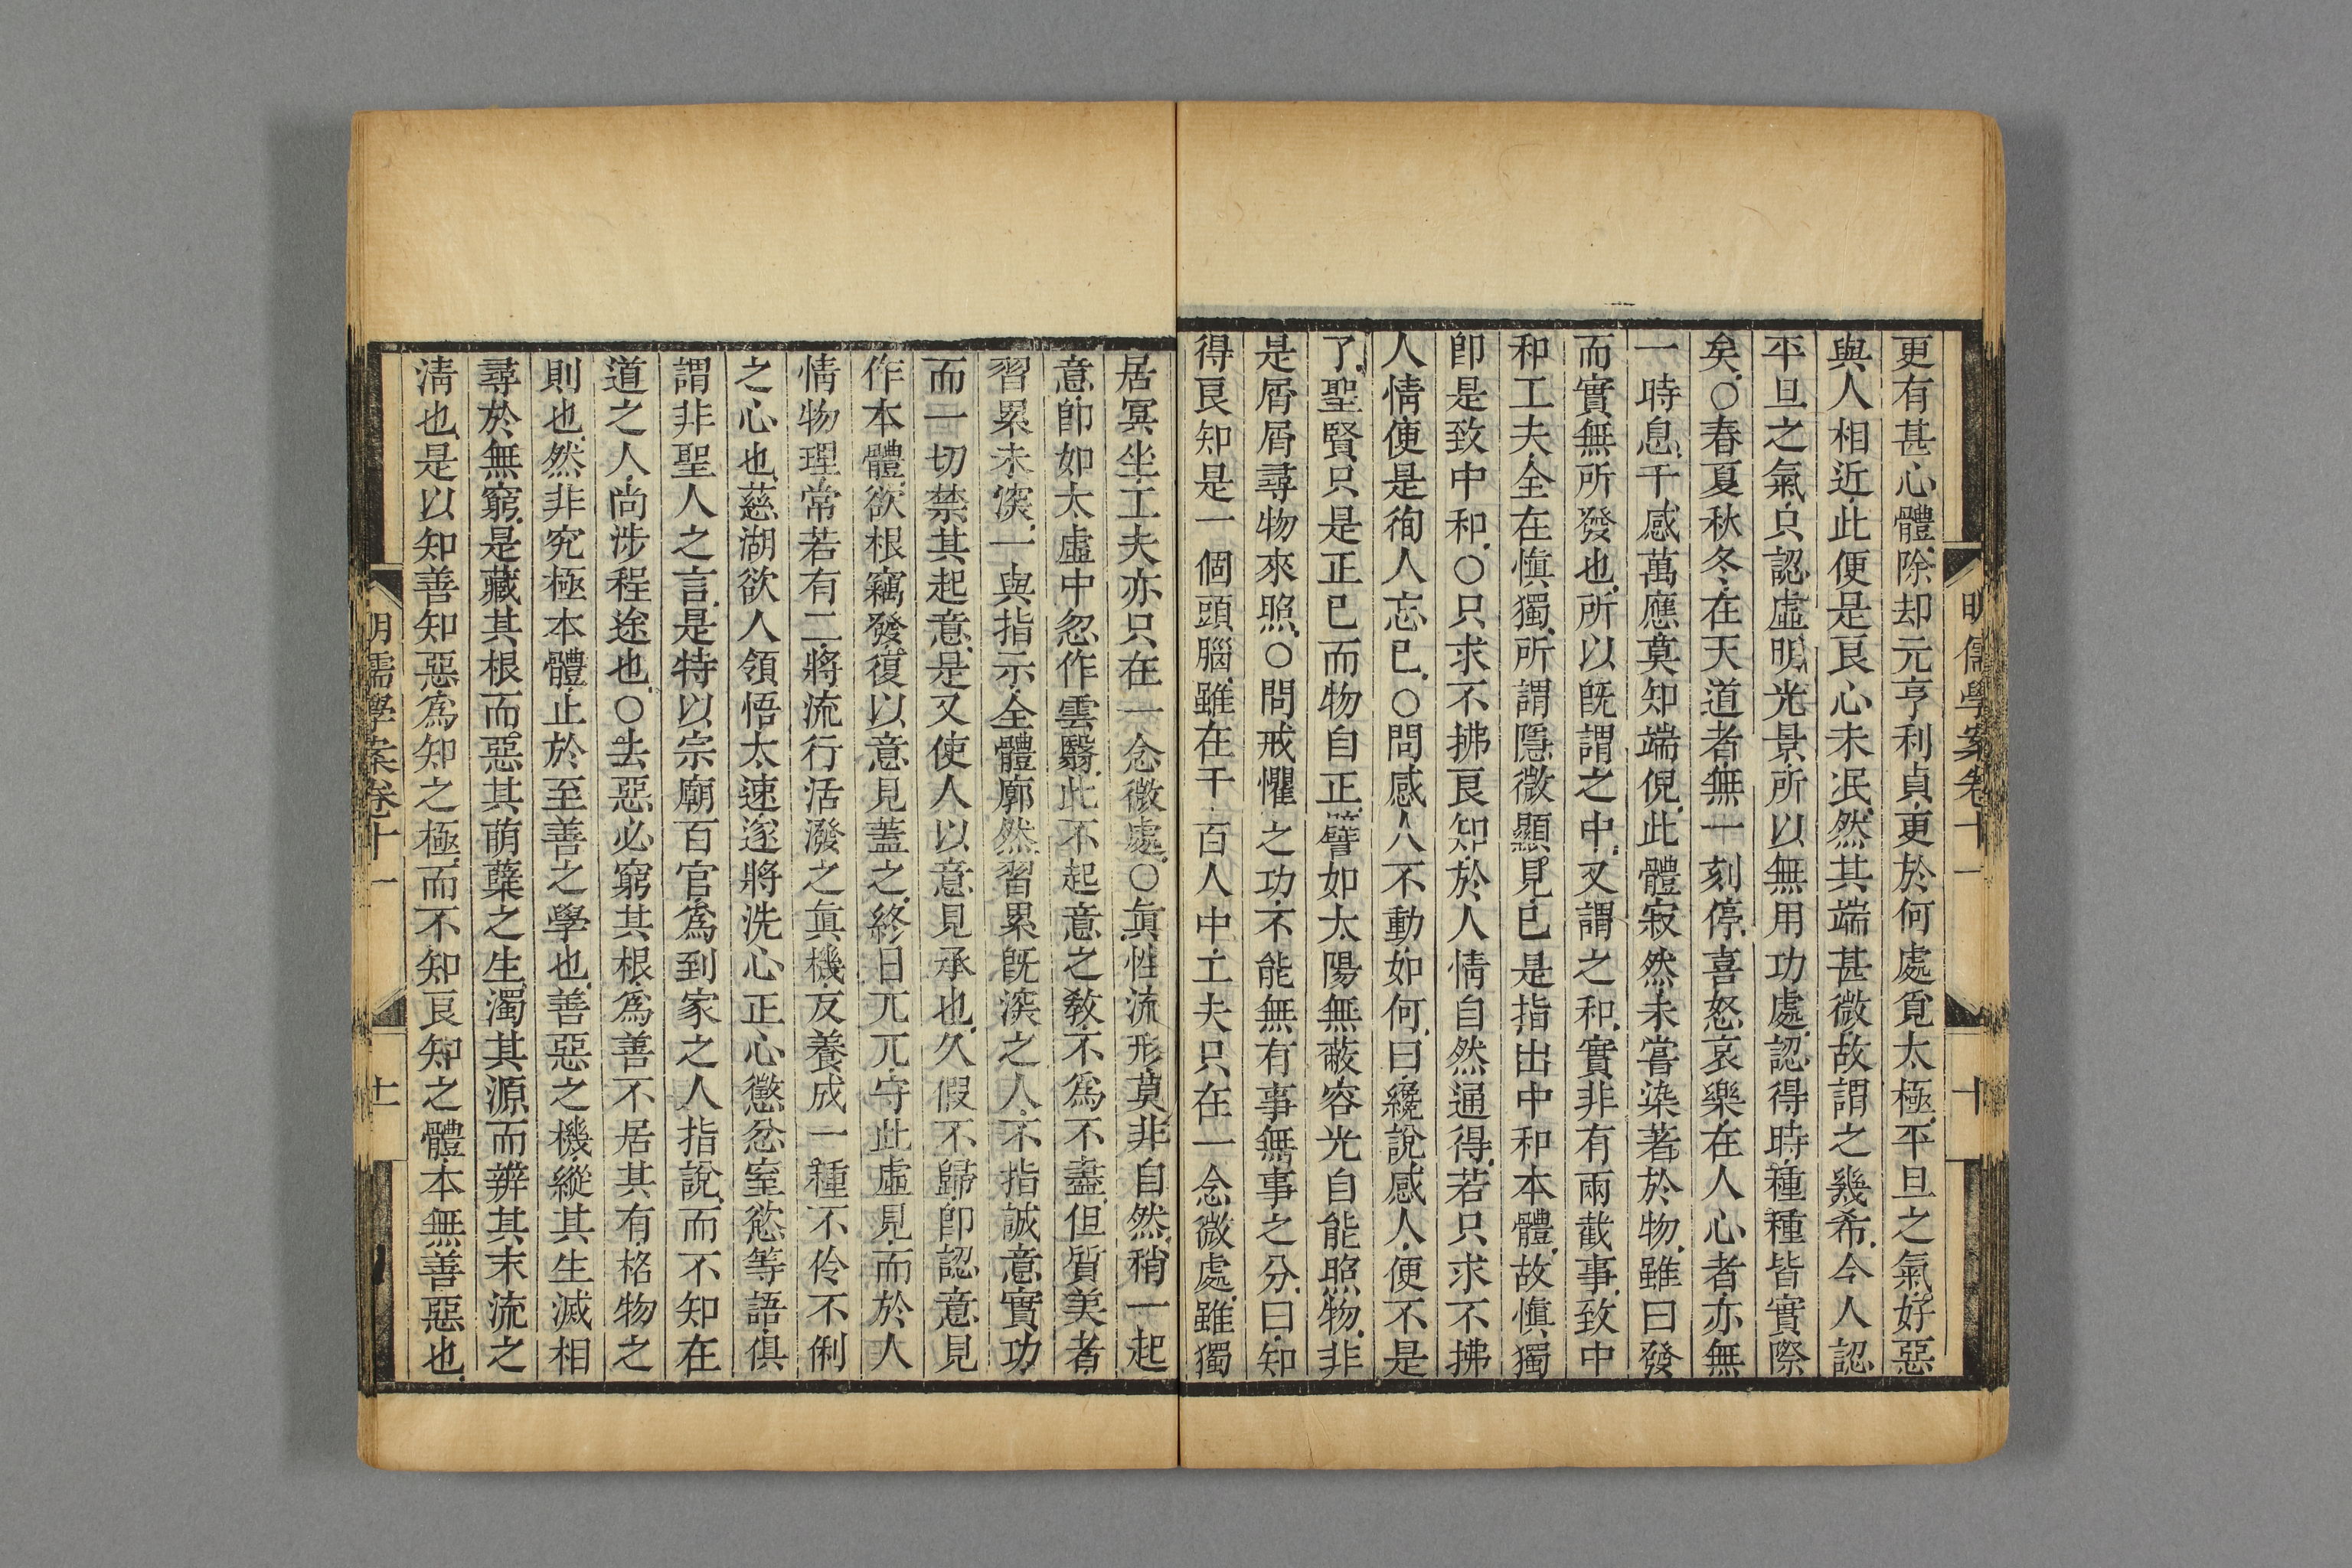 明儒學案卷十一
十
更有甚心體除却元亨利貞更於何處覓太極平旦之氣好惡
與人相近此便是良心未泯然其端甚微故謂之幾希今人認
平旦之氣只認虛明光景所以無用功處認得時種種皆實際
矣○春夏秋冬在天道者無一刻停喜怒哀樂在人心者亦無
一時息千感萬應莫知端倪此體寂然未嘗染著於物雖曰發
而實無所發也所以旣謂之中又謂之和實非有兩截事致中
和工夫全在愼獨所謂隱微顯見已是指出中和本體故愼獨
卽是致中和○只求不拂良知於人情自然通得若只求不拂
人情便是徇人忘已○問感人不動如何曰纔說感人便不是
了聖賢只是正已而物自正譬如太陽無蔽容光自能照物非
是屑屑尋物來照○問戒懼之功不能無有事無事之分曰知
得良知是一個頭腦雖在千百人中工夫只在一念微處雖獨
居冥坐工夫亦只在一念微處○眞性流形莫非自然稍一起
意卽如太虛中忽作雲翳此不起意之敎不爲不盡但質美者
習累未深一與指示全體廓然習累旣深之人不指誠意實功
而一切禁其起意是又使人以意見承也久假不歸卽認意見
作本體欲根竊發復以意見蓋之終日兀兀守此虛見而於人
情物理常若有二將流行活潑之眞機反養成一種不伶不俐
之心也慈湖欲人領悟太速遂將洗心正心懲忿窒慾等語俱
謂非聖人之言是特以宗廟百官爲到家之人指說而不知在
道之人尚涉程途也○去惡必窮其根爲善不居其有格物之
則也然非究極本體止於至善之學也善惡之機縱其生滅相
尋於無窮是藏其根而惡其萌蘖之生濁其源而辨其末流之
淸也是以知善知惡爲知之極而不知良知之體本無善惡也
明儒學案卷十一
十一